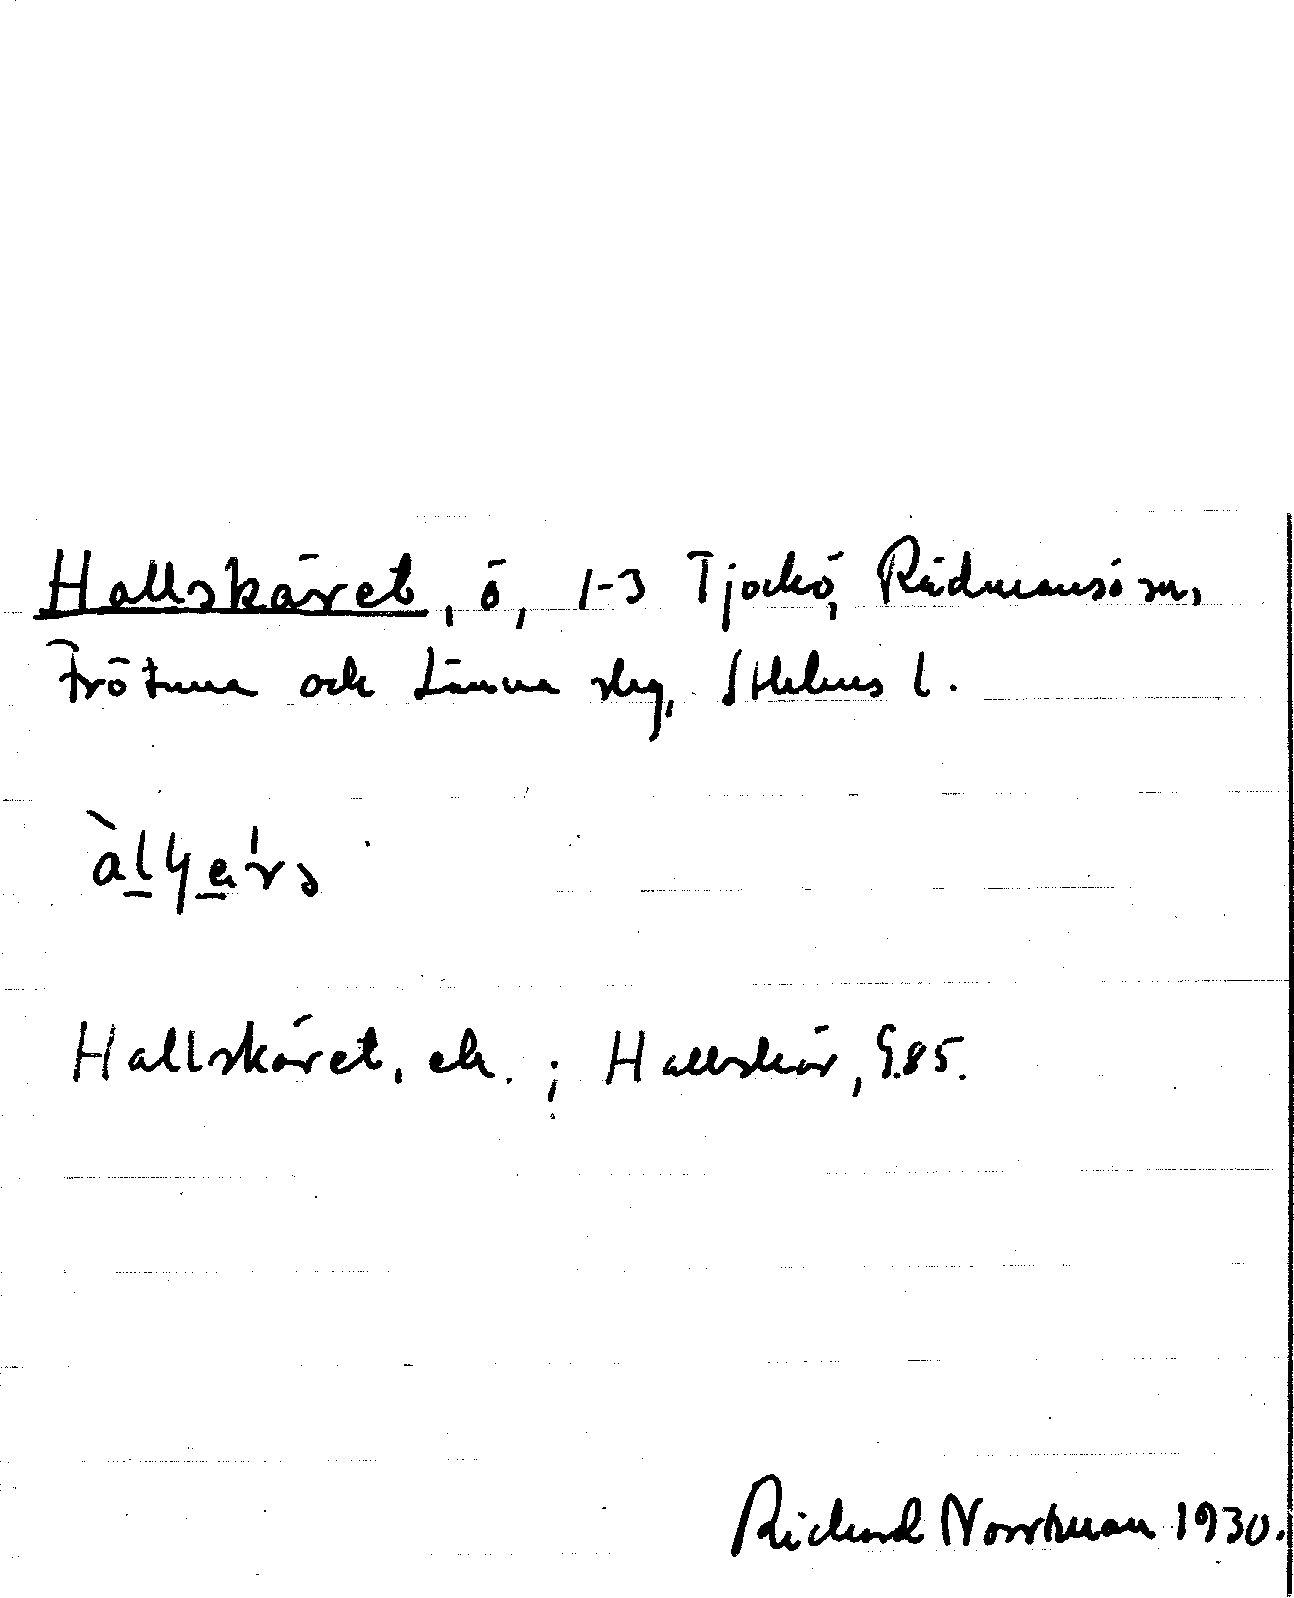 Hallskäret, ö, 1-3 Tjockö, Rådmansö sn,
Frötuna och Länna skg, Sthlms l.
Hallskäret, ek. ; Hallskär, G.85.
Richard Norrman 1930.